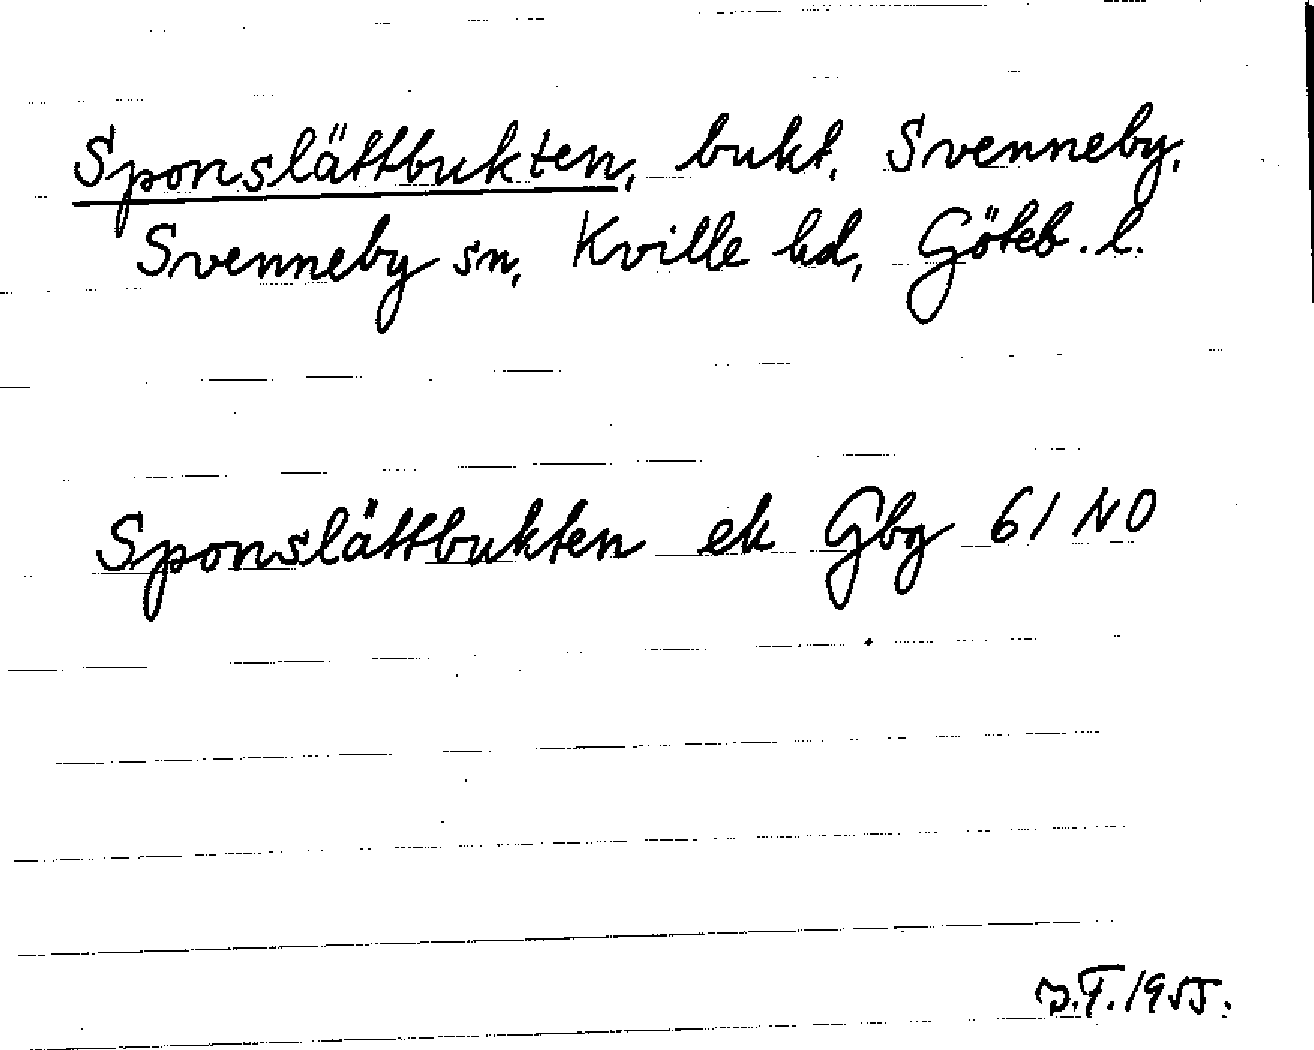 Sponslättbukten, bukt, Svenneby,
Svenneby sn, Kville hd, Göteb. l.
Sponslättbukten ek Gbg 61 NO
1955.